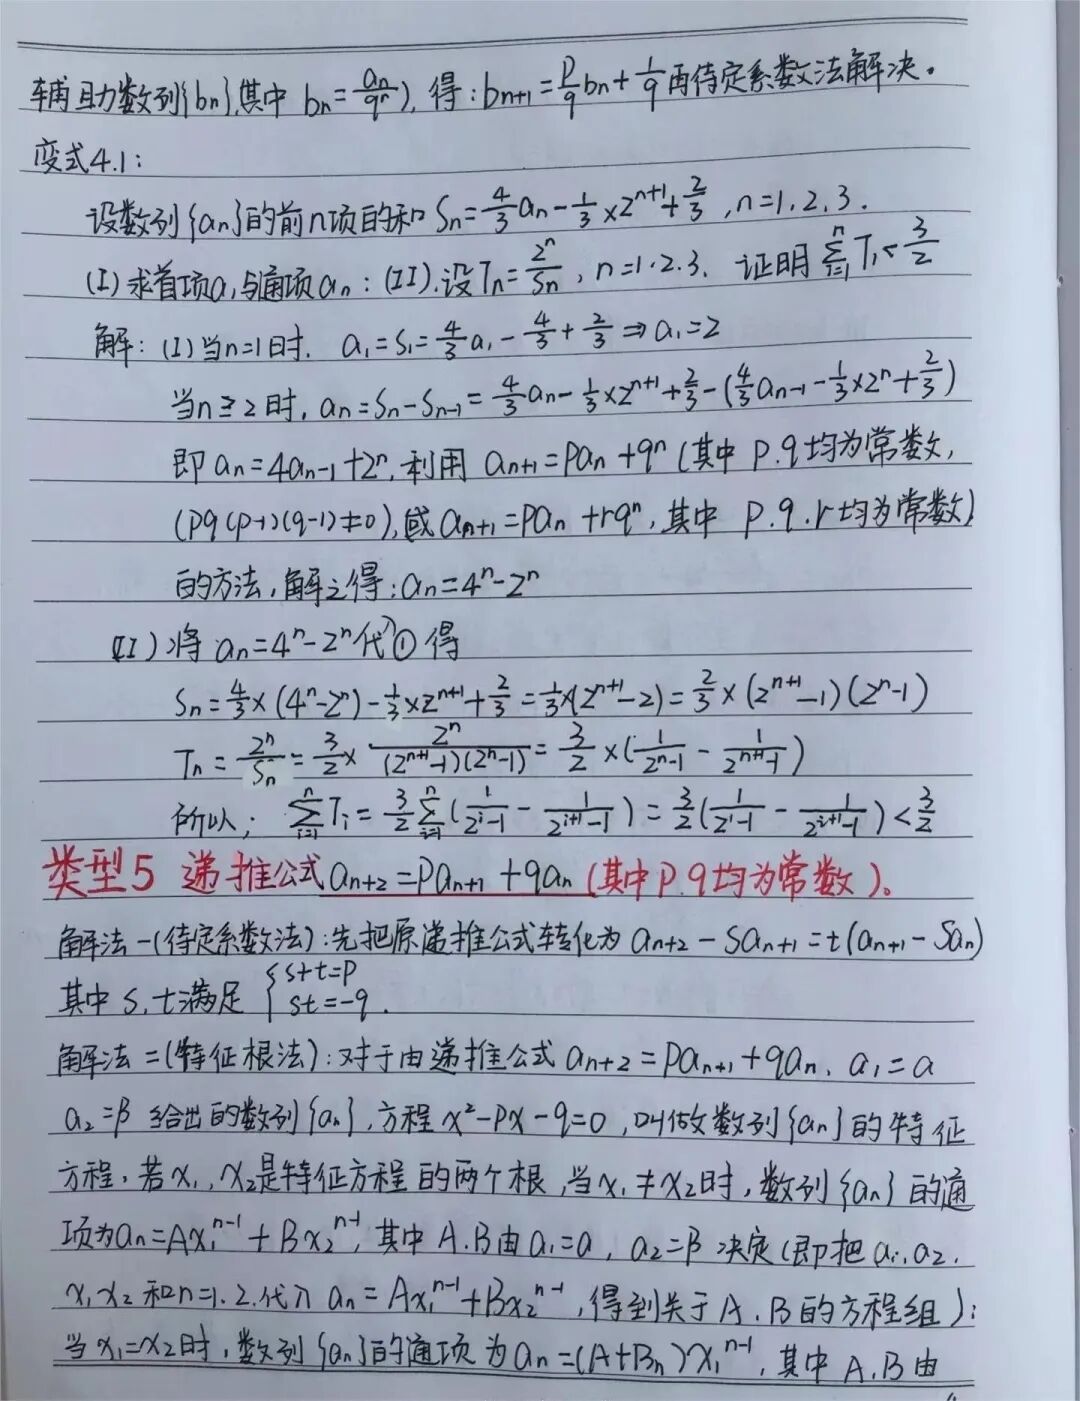 辅助数列{bn},其中 bn=an/qⁿ), 得:bn+1=p/q bn+1/q 再待定系数法解决。
变式4.1:
设数列{an}的前n项的和 Sn=4/3 an-1/3×2ⁿ⁺¹+2/3 ,n=1.2.3.
(I)求首项a₁与通项an:(II).设Tn=2ⁿ/Sn, n=1.2.3. 证明 ∑ⁿᵢ₌₁ Tᵢ<3/2
解:(I)当n=1时. a₁=S₁=4/3 a₁-4/3+2/3⇒a₁=2
当n≥2时, an=Sn-Sn-1=4/3 an-1/3×2ⁿ⁺¹+2/3-(4/3 an-1-1/3×2ⁿ+2/3)
即 an=4an-1+2ⁿ,利用 an+1=pan+qⁿ(其中 p.q均为常数,
(pq(p-1)(q-1)≠0),或an+1=pan+rqⁿ,其中 p.q.r均为常数)
的方法,解之得:an=4ⁿ-2ⁿ
(II)将 an=4ⁿ-2ⁿ代入①得
Sn=4/3×(4ⁿ-2ⁿ)-1/3×2ⁿ⁺¹+2/3=1/3×(2ⁿ⁺¹-2)=2/3×(2ⁿ⁺¹-1)(2ⁿ-1)
Tn=2ⁿ/Sn=3/2×2ⁿ/(2ⁿ⁺¹-1)(2ⁿ-1)=3/2×(1/2ⁿ-1 - 1/2ⁿ⁺¹-1)
所以; ∑ⁿᵢ₌₁ Tᵢ=3/2∑ⁿᵢ₌₁(1/2ⁱ-1 - 1/2ⁱ⁺¹-1)=3/2(1/2¹-1 - 1/2ⁱ⁺¹-1)<3/2
类型5 递推公式an+2=pan+1+qan(其中p.q均为常数)。
解法一(待定系数法):先把原递推公式转化为 an+2-San+1=t(an+1-San)
其中 S.t满足 {s+t=p
st=-q.
解法二(特征根法):对于由递推公式 an+2=pan+1+qan, a₁=α
a₂=β 给出的数列{an},方程x²-px-q=0,叫做数列{an}的特征
方程,若x₁,x₂是特征方程的两个根,当x₁≠x₂时,数列{an}的通
项为an=Ax₁ⁿ⁻¹+Bx₂ⁿ⁻¹,其中A.B由a₁=α, a₂=β决定(即把a₁.a₂.
x₁x₂和n=1.2.代入 an=Ax₁ⁿ⁻¹+Bx₂ⁿ⁻¹,得到关于A.B的方程组);
当x₁=x₂时,数列{an}的通项为an=(A+Bn)x₁ⁿ⁻¹,其中A.B由